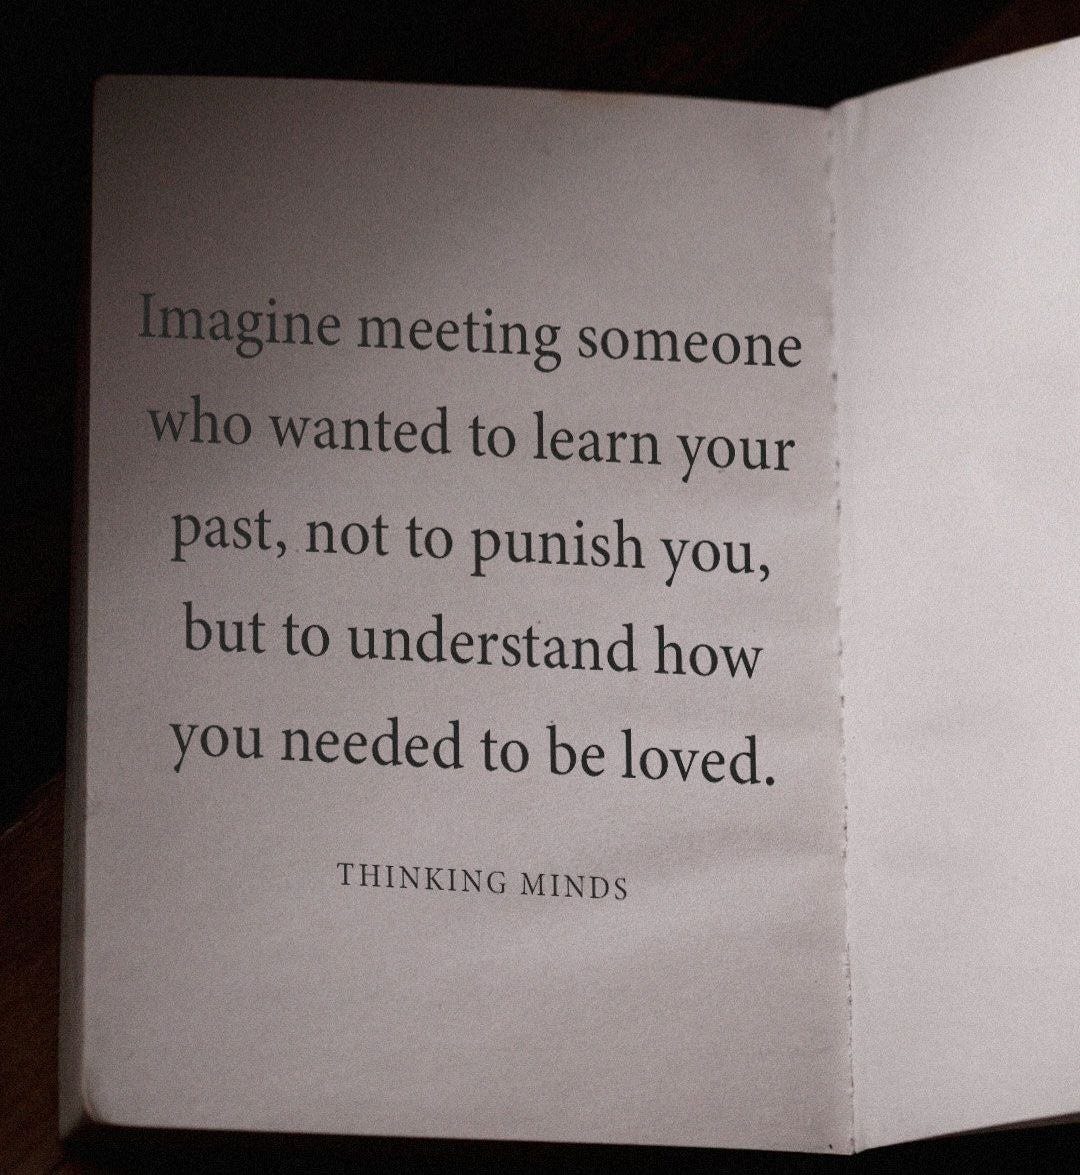 Imagine meeting someone
who wanted to learn your
past, not to punish you,
but to understand how
you needed to be loved.
THINKING MINDS